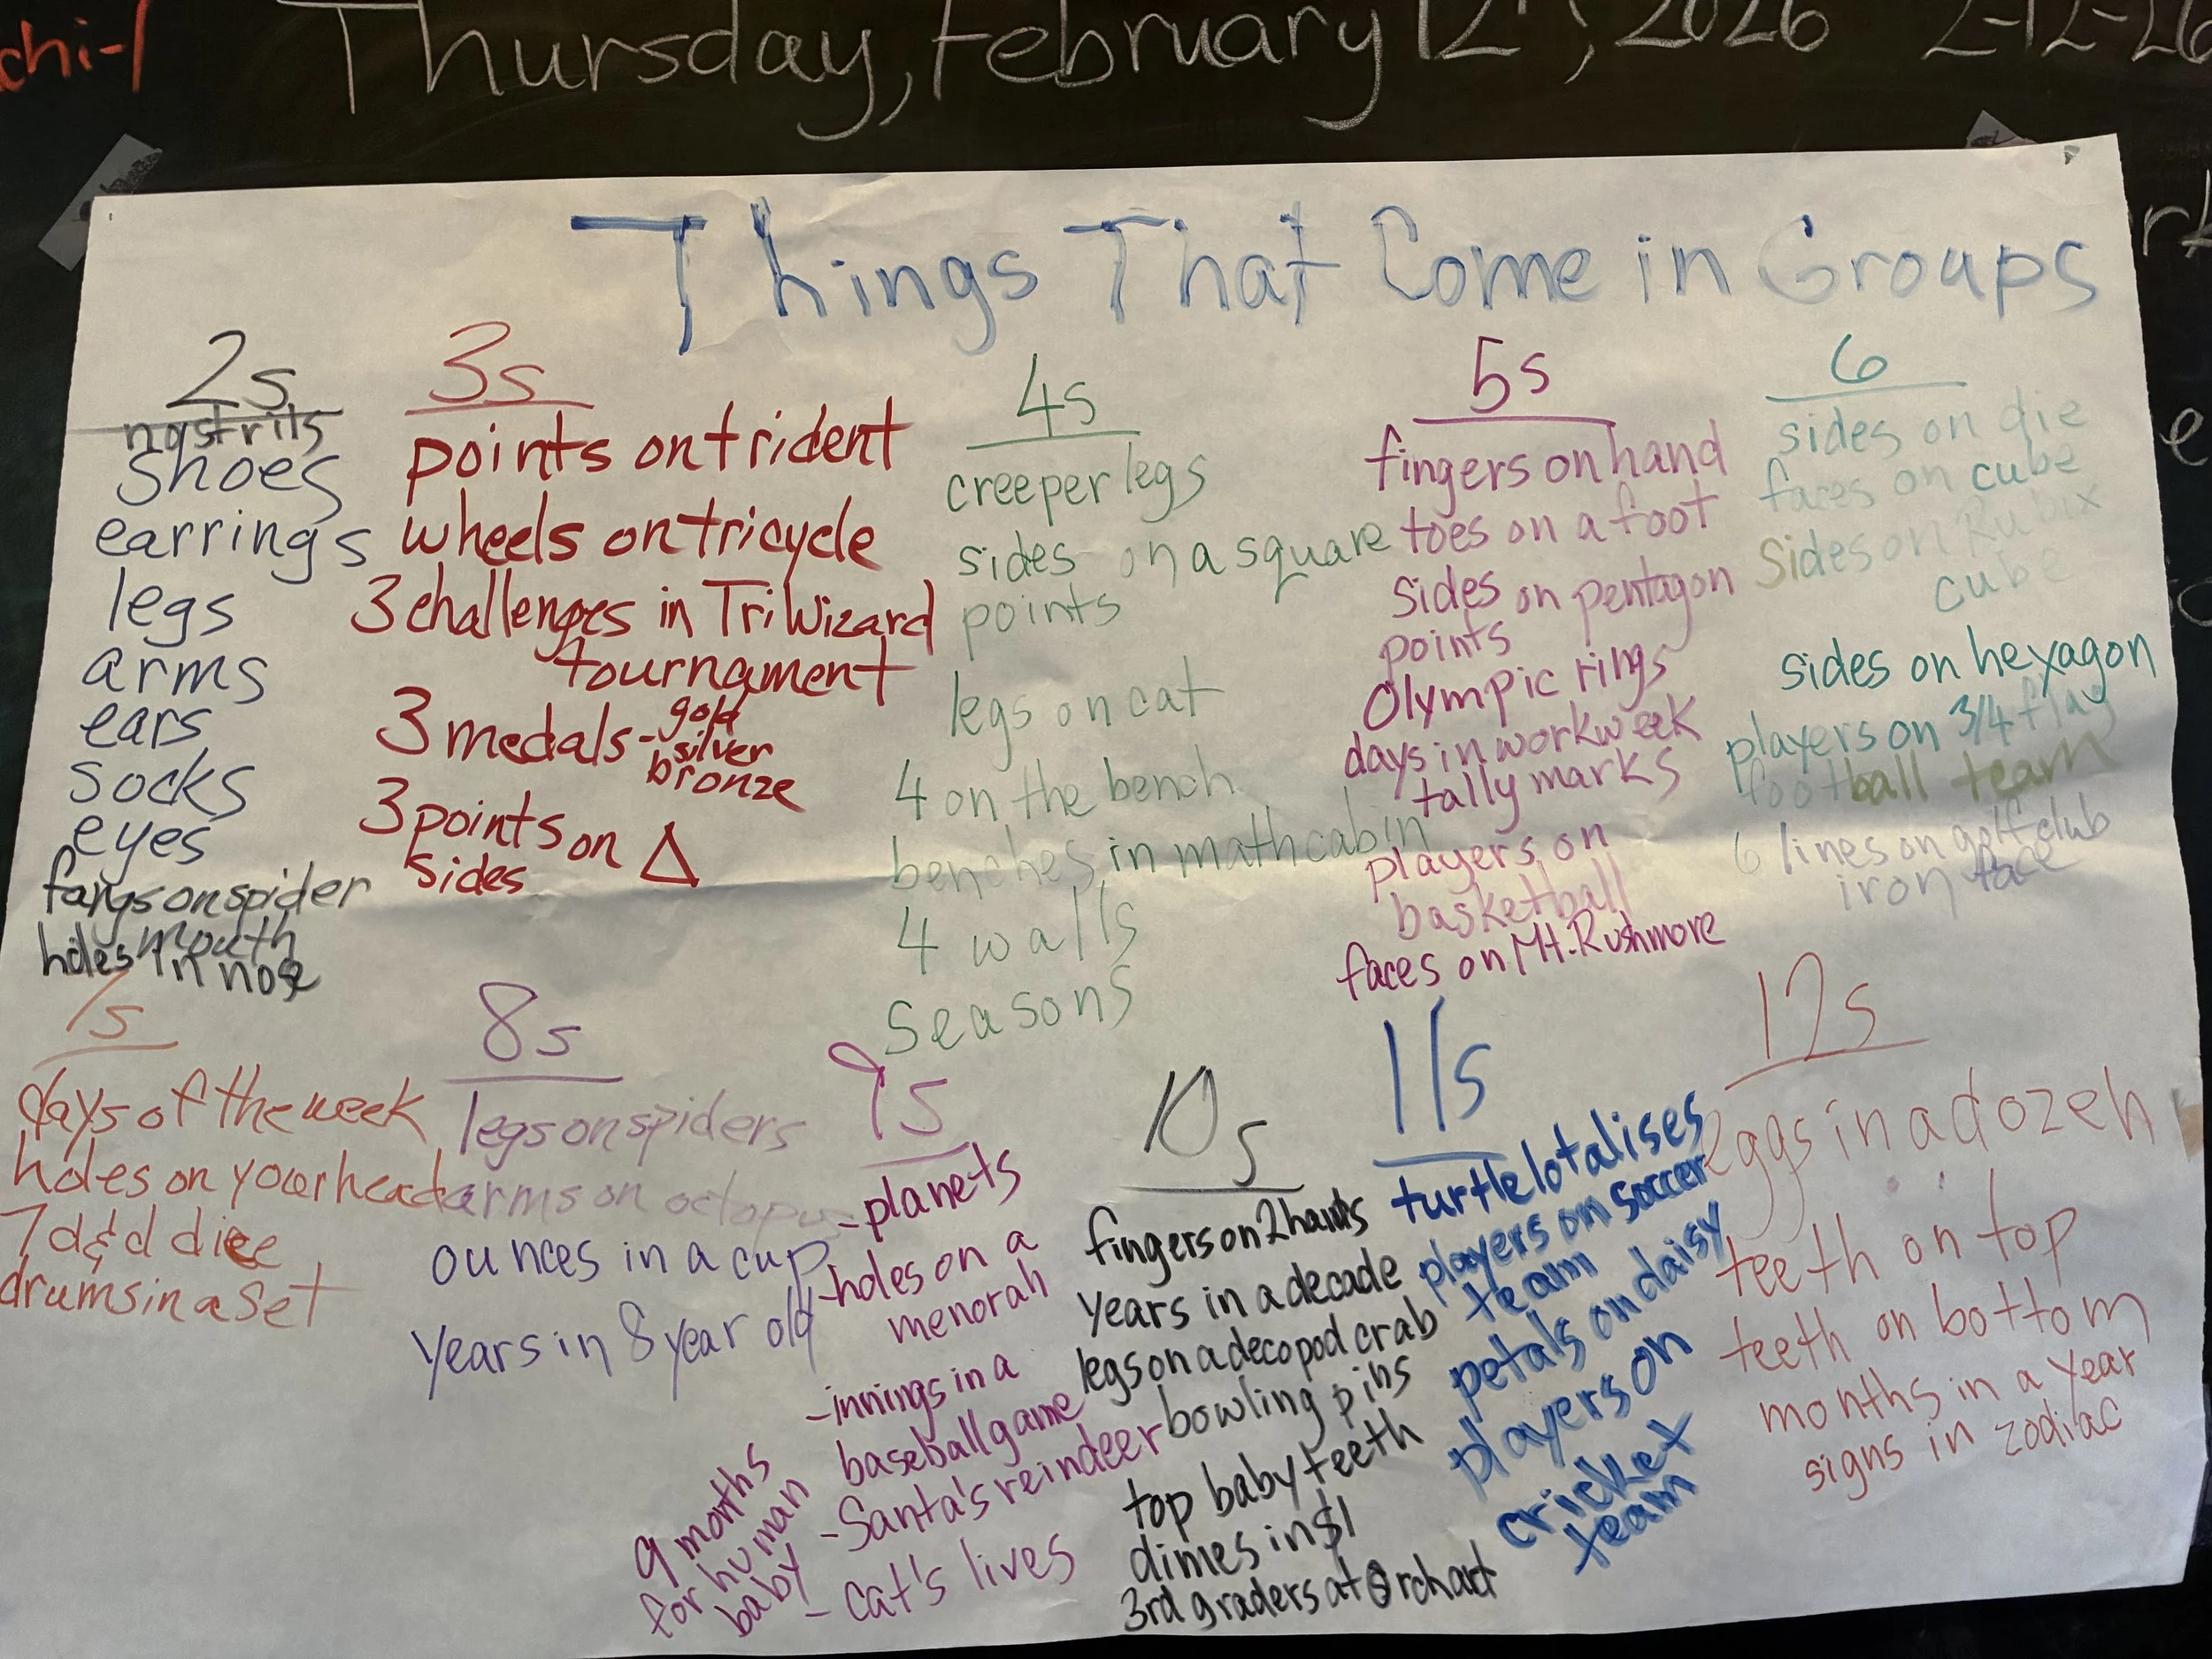 chi-1
Thursday, February 12, 2026 2-12-26
Things That Come in Groups
2s
nostrils
shoes
earrings
legs
arms
ears
socks
eyes
fangs on spider
mouth
holes in nose
3s
points on trident
wheels on tricycle
3 challenges in TriWizard
tournament
3 medals - gold
silver
bronze
3 points on △
sides
4s
creeper legs
sides on a square
points
legs on cat
4 on the bench
benches in math cabin
4 walls
seasons
5s
fingers on hand
toes on a foot
sides on pentagon
points
Olympic rings
days in workweek
tally marks
players on
basketball
faces on Mt. Rushmore
6
sides on die
faces on cube
sides on Rubix
cube
sides on hexagon
players on 3/4 flag
football team
6 lines on golf club
iron face
7s
days of the week
holes on your head
7 d&d dice
drums in a set
8s
legs on spiders
arms on octopus
ounces in a cup
years in 8 year old
9s
- planets
- holes on a
menorah
- innings in a
baseball game
- Santa's reindeer
- cat's lives
9 months
for human
baby
10s
fingers on 2 hands
years in a decade
legs on a decopod crab
bowling pins
top baby teeth
dimes in $1
3rd graders at Orchart
11s
turtlelotalises
players on soccer
team
petals on daisy
players on
cricket
team
12s
eggs in a dozen
teeth on top
teeth on bottom
months in a year
signs in zodiac